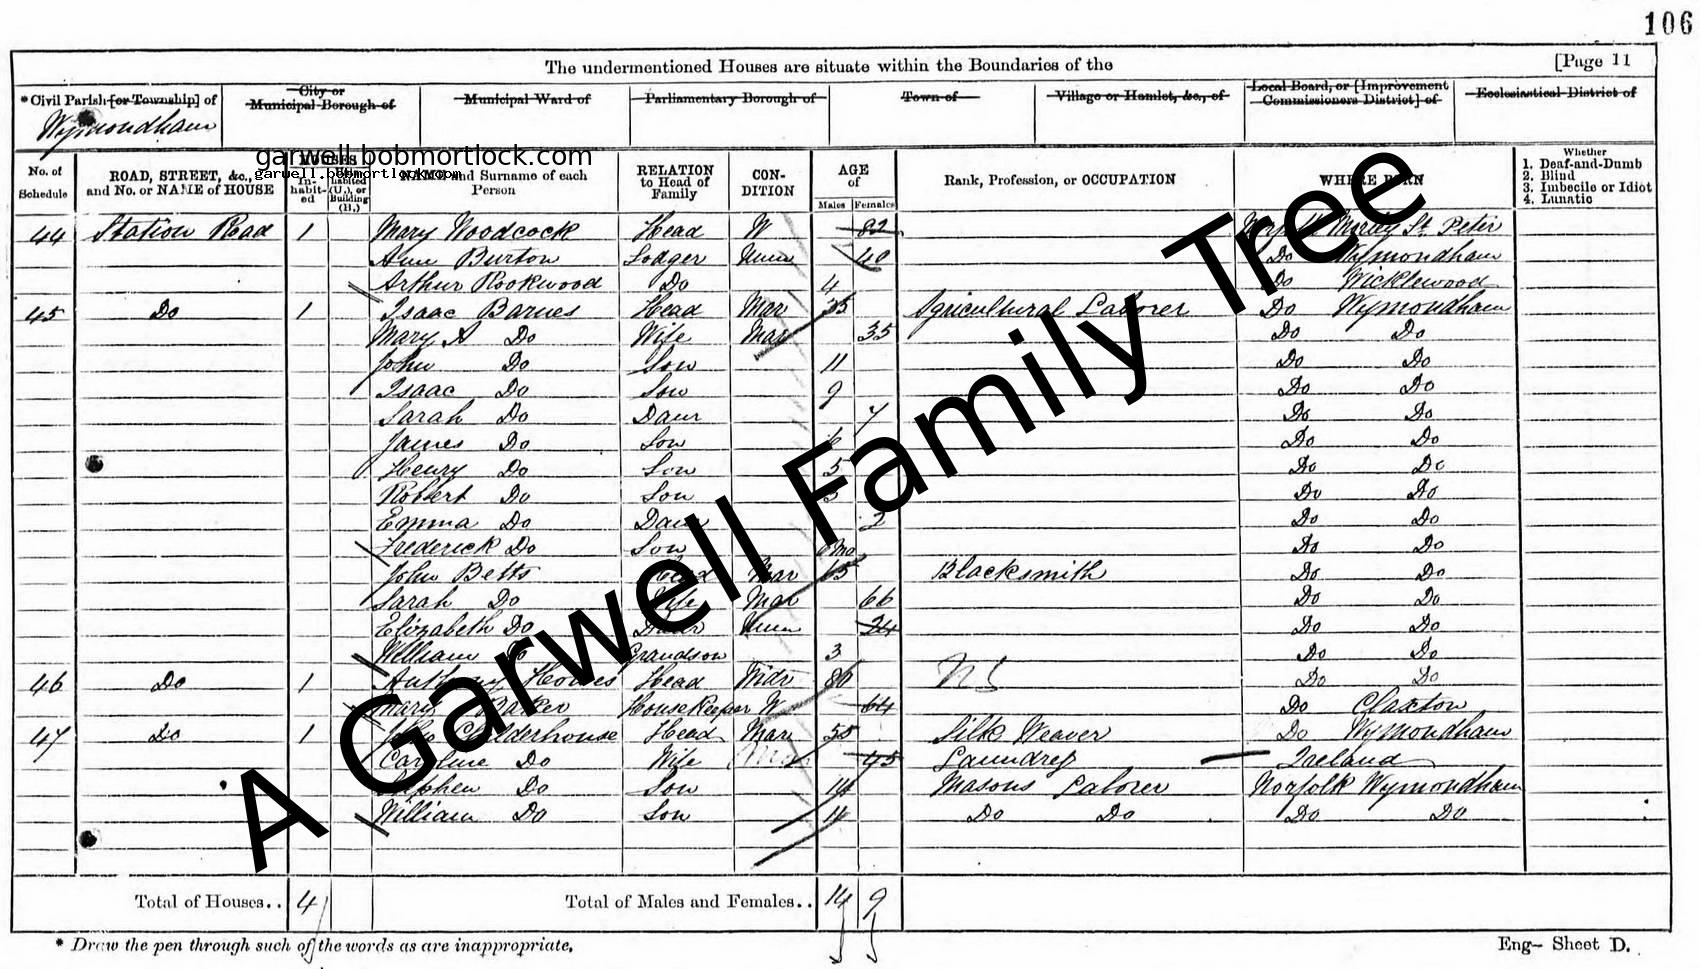 106
The undermentioned Houses are situate within the Boundaries of the [Page 11
*Civil Parish [or Township] of City or Municipal Borough of Municipal Ward of Parliamentary Borough of Town of Village or Hamlet, &c., of Local Board, or [Improvement Commissioners District] of Ecclesiastical District of
Wymondham
garwell.bobmortlock.com
garwell.bobmortlock.com
No. of Schedule ROAD, STREET, &c., and No. or NAME of HOUSE HOUSES In-habit-ed Un-inhabited (U.), or Building (B.) NAME and Surname of each Person RELATION to Head of Family CON-DITION AGE of Males Females Rank, Profession, or OCCUPATION WHERE BORN Whether 1. Deaf-and-Dumb 2. Blind 3. Imbecile or Idiot 4. Lunatic
44 Station Road 1 Mary Woodcock Head W 82 Morley St. Peter
Ann Burton Lodger Unm 40 Do Wymondham
Arthur Rookwood Do 4 Do Wicklewood
45 Do 1 Isaac Barnes Head Mar 35 Agricultural Laborer Do Wymondham
Mary A Do Wife Mar 35 Do Do
John Do Son 11 Do Do
Isaac Do Son 9 Do Do
Sarah Do Daur 7 Do Do
James Do Son 6 Do Do
Henry Do Son 5 Do Do
Robert Do Son 3 Do Do
Emma Do Daur 2 Do Do
Frederick Do Son Mo Do Do
John Betts Head Mar 65 Blacksmith Do Do
Sarah Do Wife Mar 66 Do Do
Elizabeth Do Daur Unm 24 Do Do
William Do Grandson 3 Do Do
46 Do 1 Anthony Howes Head Widr Do Do
Mary Baker HouseKeeper W 64 Do Claxton
47 Do 1 Childerhouse Head Mar 55 Silk Weaver Do Wymondham
Caroline Do Wife 45 Laundress Ireland
Stephen Do Son 14 Masons Laborer Norfolk Wymondham
William Do Son 11 Do Do Do Do
A Garwell Family Tree
Total of Houses.. 4 Total of Males and Females.. 14 9
* Draw the pen through such of the words as are inappropriate.
Eng— Sheet D.